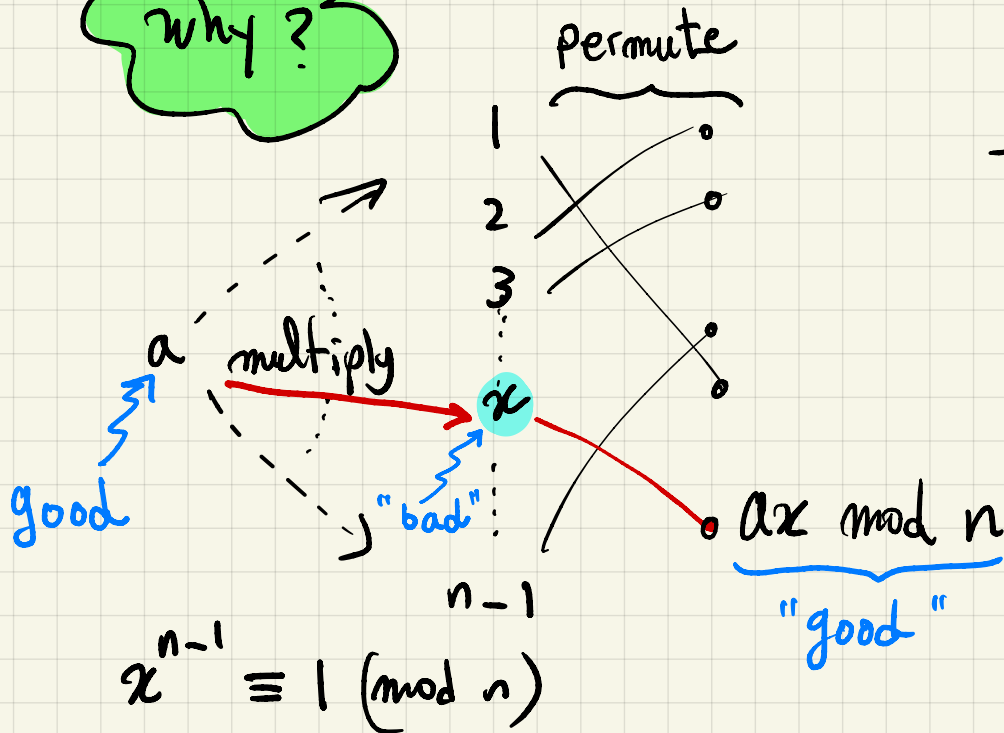 why ?
permute
1
2
3
a
multiply
x
good
"bad"
ax mod n
n-1
"good"
x^{n-1} ≡ 1 (mod n)